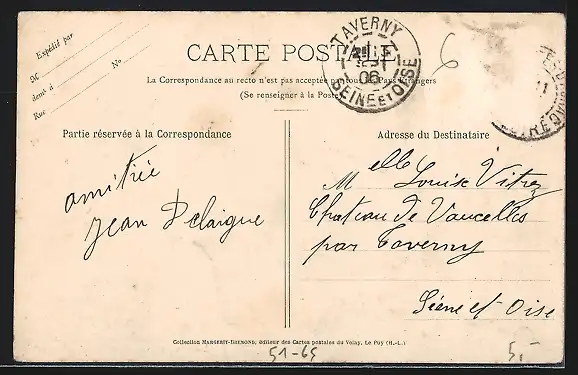 Expédié par
M
demt à
Rue
No
CARTE POSTALE
La Correspondance au recto n'est pas acceptée par tous les Pays étrangers
(Se renseigner à la Poste)
TAVERNY
SEINE ET OISE
06
6
11
Partie réservée à la Correspondance
Adresse du Destinataire
amitiée
Jean Delaigue
Melle Louise Vitrez
Chateau de Vaucelles
par Taverny
Seine et Oise
Collection MARGERIT-BREMOND, éditeur des Cartes postales du Velay, Le Puy (H.-L.)
51-65
5,-